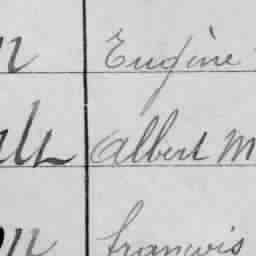 Eugène
Albert M
François